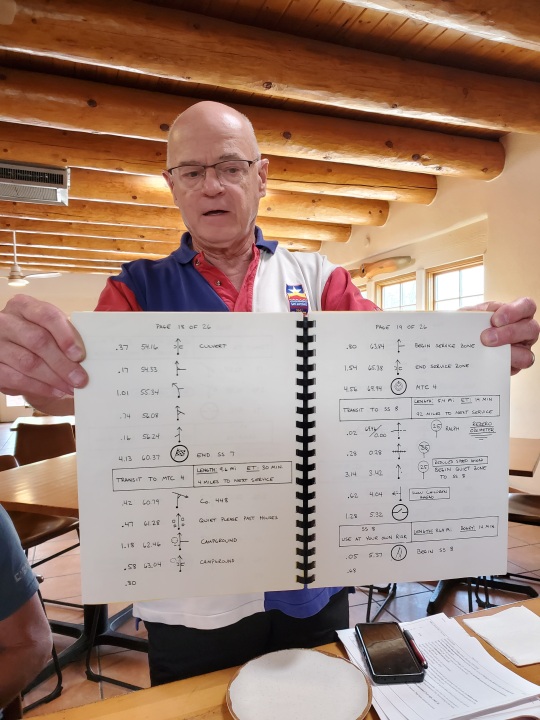 PAGE 18 OF 26
.37 54.16 CULVERT
.17 54.33
1.01 55.34
.74 56.08
.16 56.24
4.13 60.37 END SS 7
TRANSIT TO MTC 4
LENGTH: 9.6 MI ET: 30 MIN
4 MILES TO NEXT SERVICE
.42 60.79 Co. 448
.47 61.28 QUIET PLEASE PAST HOUSES
1.18 62.46 CAMPGROUND
.58 63.04 CAMPGROUND
.80
PAGE 19 OF 26
.80 63.84 BEGIN SERVICE ZONE
1.54 65.38 END SERVICE ZONE
4.56 69.94 MTC 4
TRANSIT TO SS 8
LENGTH: 5.4 MI ET: 14 MIN
92 MILES TO NEXT SERVICE
.02 0.00 25 RALPH
REZERO
ODOMETER
.28 0.28 35
REDUCED SPEED AHEAD
3.14 3.42 25 BEGIN QUIET ZONE
TO SS 8
.62 4.04 SLOW CHILDREN
AHEAD
1.28 5.32
SS 8
USE AT YOUR OWN RISK
.05 5.37 BEGIN SS 8
.68